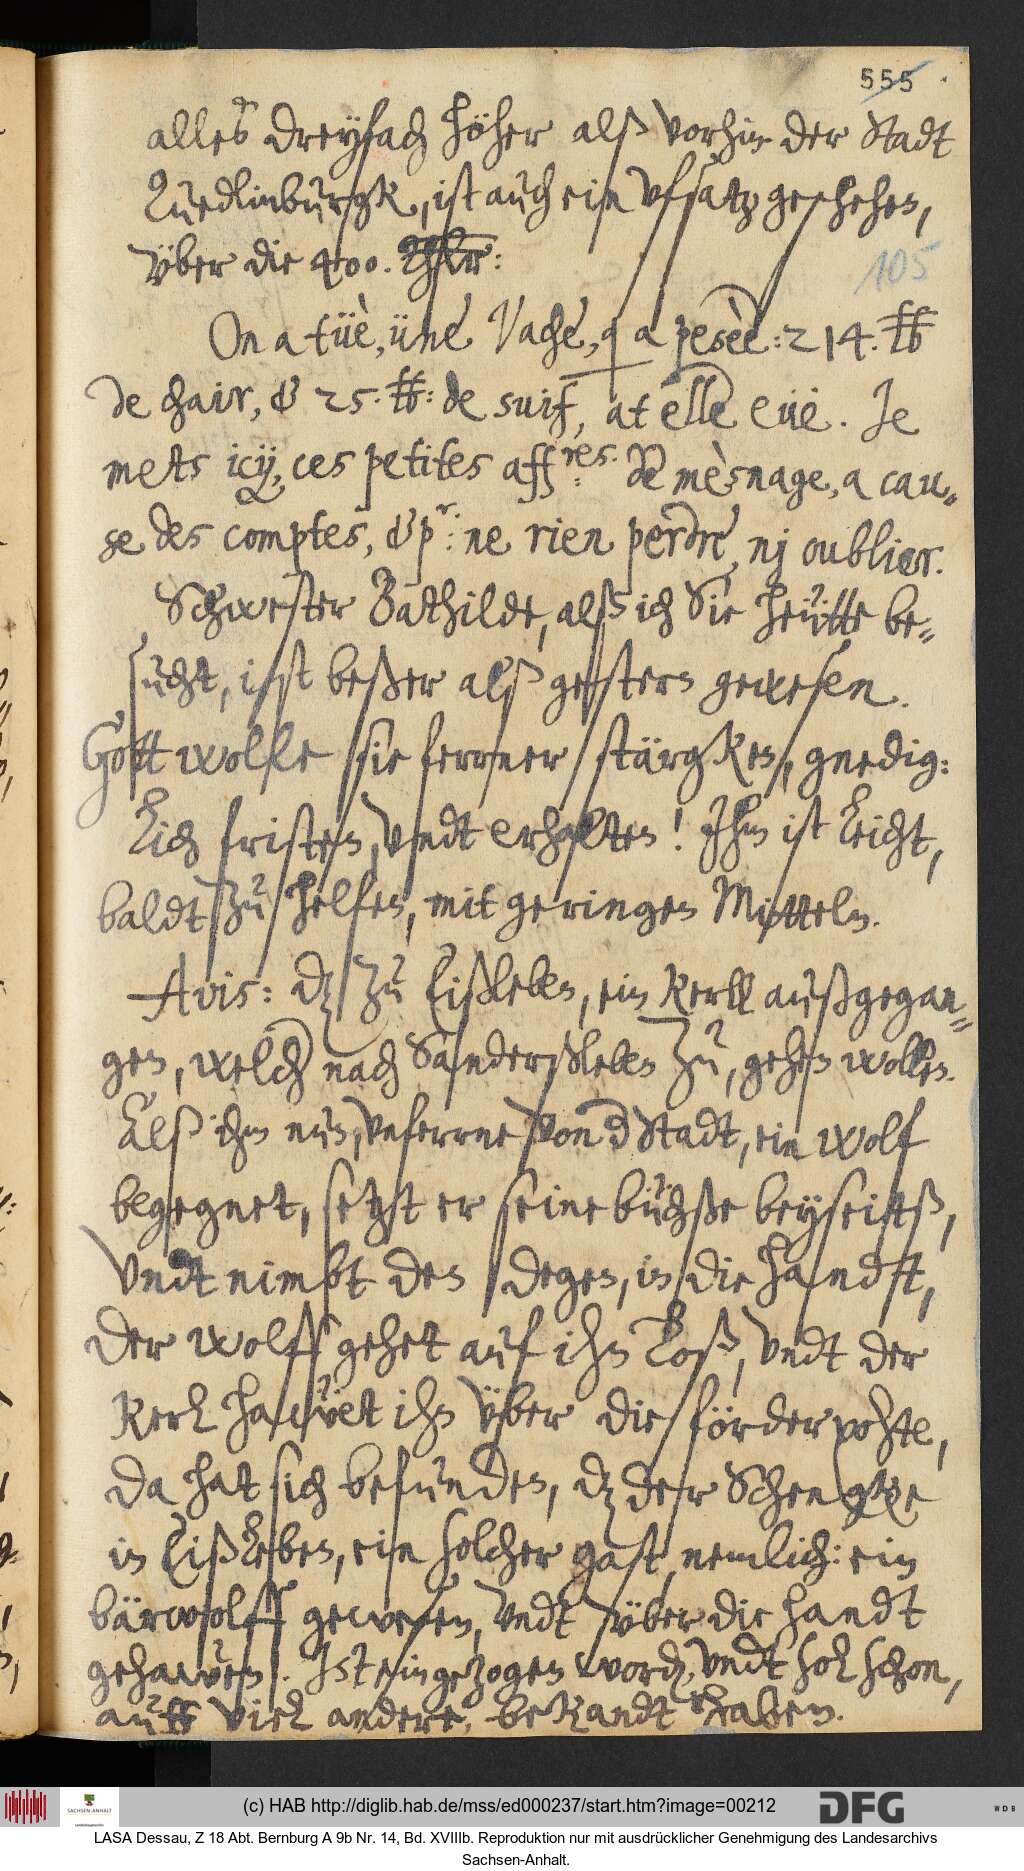 555
alles dreyfach höher alß vorhin der Stadt
Quedlinburgk, ist auch ein vfsatz geschehen,
vber die 400. Thlr:
105
On a tüè, üne Vache, q a pesèe: 214. ℔
de chair, & 25. ℔: de suif, at elle eüe. Je
mets icy, ces petites affres: de mèsnage, a cau=
se des comptes, & pr: ne rien perdre, nj oublier.
Schwester Bathilde, alß ich Sie heütte be=
sucht, ist beßer alß gestern gewesen.
Gott wolle sie ferrner stärgken, gnedig:
lich fristen, vndt erhalten! Ihm ist leicht,
baldt zu helfen, mit geringen Mitteln.
Avis: dz zu Eißleben, ein Kerll außgegan=
gen, welcher nach Sanderßleben zu, gehen wollen.
Alß ihm nun, vnferrne von der Stadt, ein wolf
begegnet, setzt er seine büchße beyseitß,
vndt nimbt den degen, in die handt,
der wolff gehet auf ihn loß, vndt der
Kerl hawet ihn vber die förderpohte,
da hat sich befunden, dz der Schengke
in Eißleben, ein solcher gast, nemlich: ein
bärwolff gewesen, vndt vber die handt
gehawen. Ist eingezogen worden, vndt sol schon,
auff viel andere, bekandt haben.
(c) HAB http://diglib.hab.de/mss/ed000237/start.htm?image=00212
SACHSEN-ANHALT
DFG
WDB
LASA Dessau, Z 18 Abt. Bernburg A 9b Nr. 14, Bd. XVIIIb. Reproduktion nur mit ausdrücklicher Genehmigung des Landesarchivs
Sachsen-Anhalt.